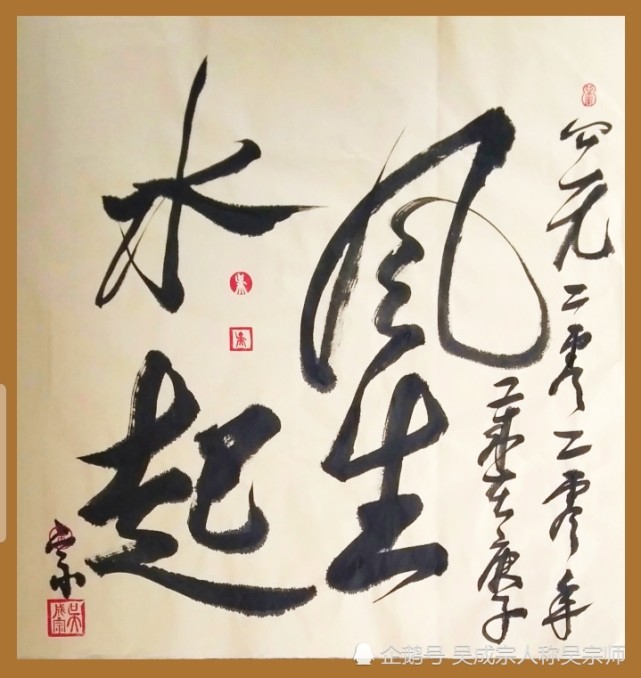 公元二零二零年
歲在庚子
風生
水起
宗
吴成宗
企鹅号 吴成宗人称吴宗师